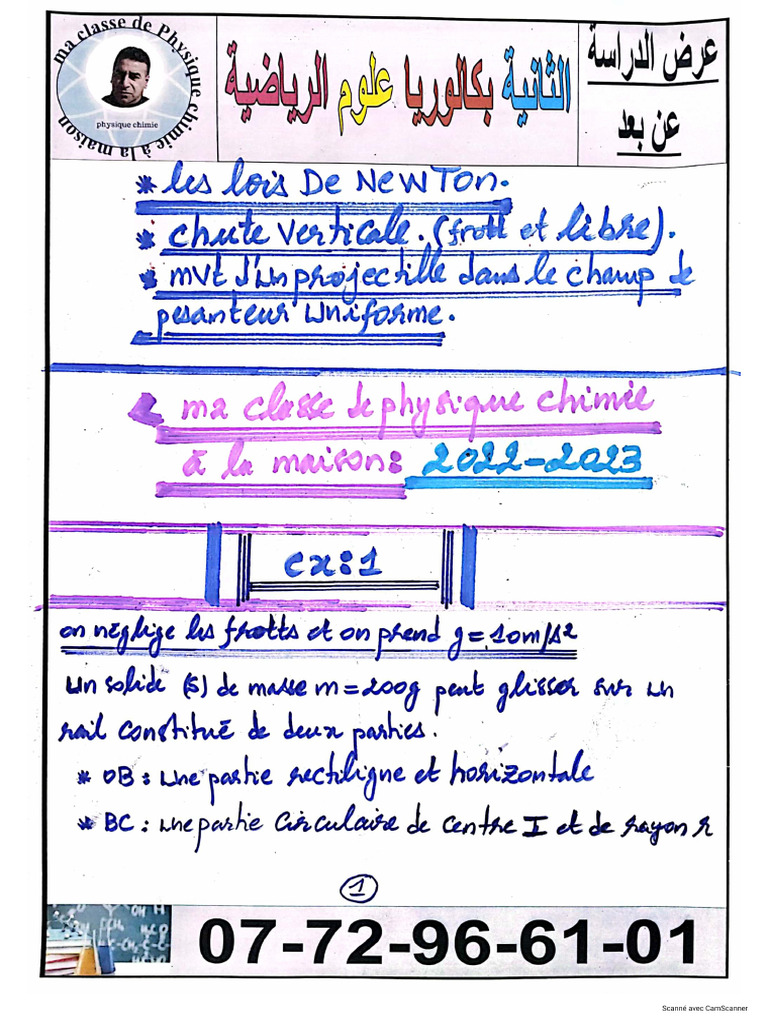 ma classe de Physique chimie à la maison
physique chimie
الثانية بكالوريا علوم الرياضية
عرض الدراسة
عن بعد
* les lois De NewTon.
* chute verticale. (frott et libre).
* mvt d'un projectille dans le champ de
pesanteur uniforme.
ma classe de physique chimie
à la maison: 2022-2023
ex:1
on néglige les frotts et on prend g = 10m/s²
un solide (S) de masse m = 200g peut glisser sur un
rail constitué de deux parties.
* OB : une partie rectiligne et horizontale
* BC : une partie circulaire de centre I et de rayon r
1
07-72-96-61-01
Scanné avec CamScanner